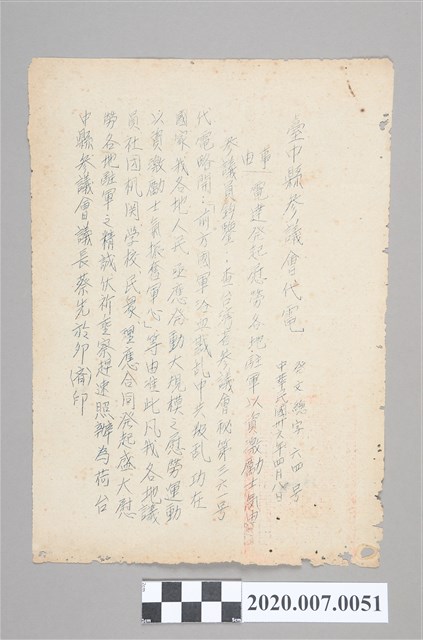 臺中縣參議會代電
公文總字一六四號
中華民國卅六年四月八日
事
由 電達發起慰勞各地駐軍以資激勵士氣由
參議員鈞鑒:查台灣省參議會秘第三六一號
代電略開:「前方國軍浴血戡乱中共叛乱功在
國家我各地人民亟應發動大規模之慰勞運動
以資激勵士氣振奮軍心」等由准此凡我各地議
員社団机関学校民衆單應合同發起盛大慰
勞各地駐軍之精誠伏祈查察趕速照辦為荷台
中縣參議會議長蔡先於卯(齊)印
2cm
5cm
2020.007.0051